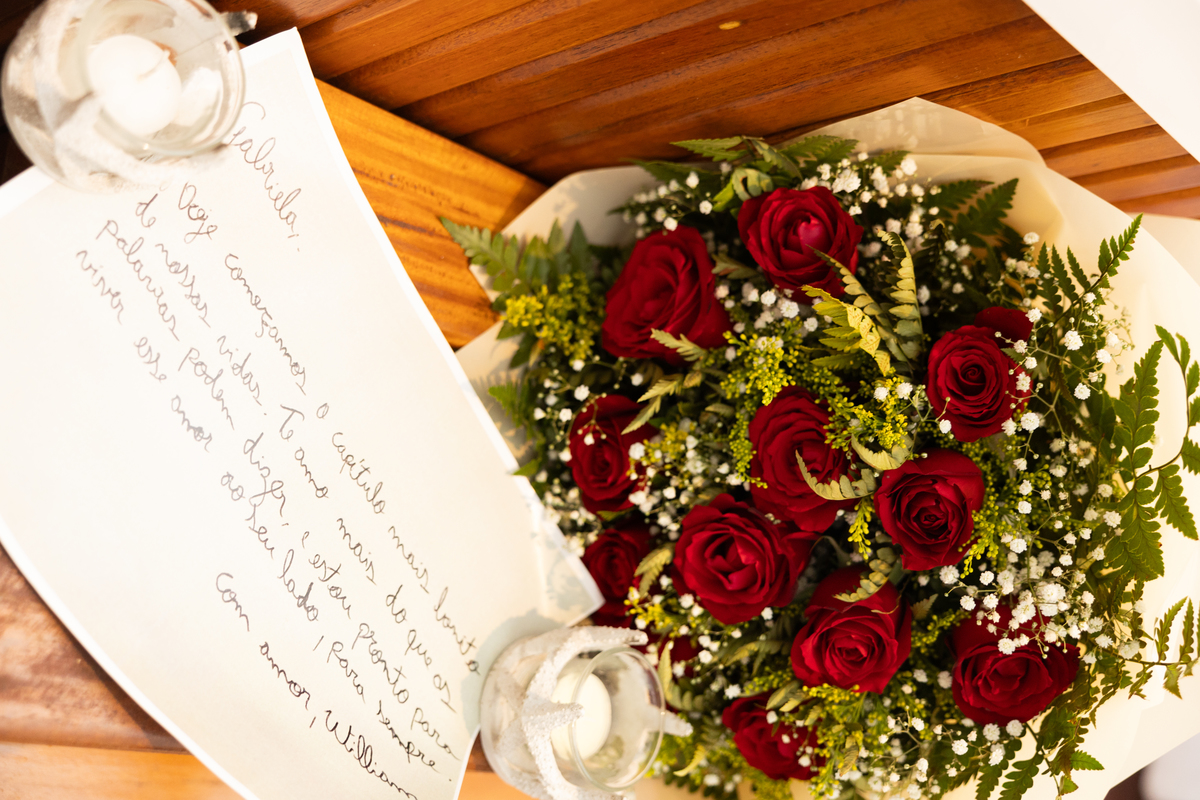 Gabriela,
Hoje começamos o capítulo mais bonito
de nossas vidas. Te amo mais do que as
palavras podem dizer, e estou pronto para
viver esse amor ao seu lado, para sempre.
Com amor, William